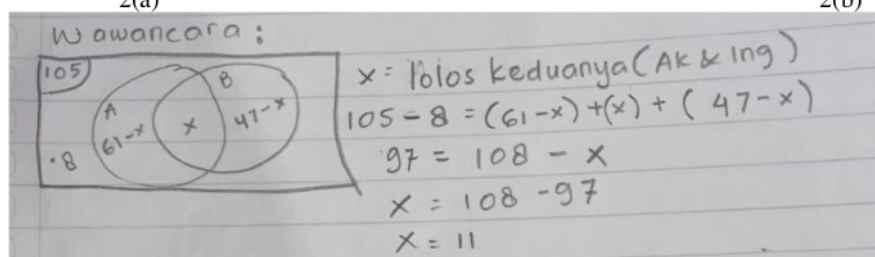 2(a) 2(b)
Wawancara:
105
A B
61-x x 47-x
.8
x = lolos keduanya (AK & Ing)
105 - 8 = (61-x) + (x) + (47-x)
97 = 108 - x
x = 108 - 97
x = 11